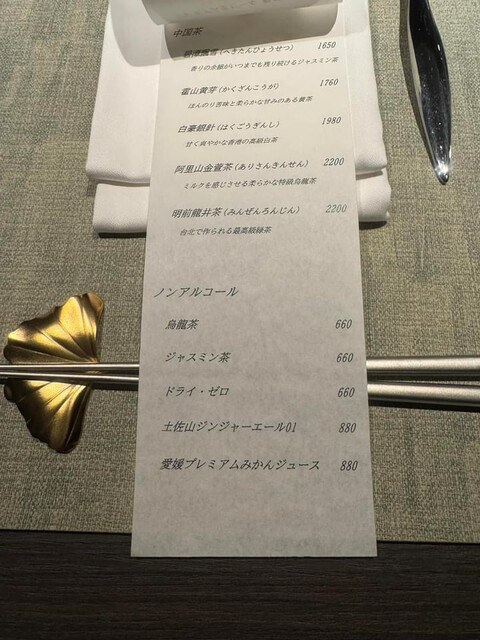 中国茶
碧潭飄雪(へきたんひょうせつ) 1650
香りの余韻がいつまでも残り続けるジャスミン茶
霍山黄芽(かくざんこうが) 1760
ほんのり苦味と柔らかな甘みのある黄茶
白豪銀針(はくごうぎんし) 1980
甘く爽やかな香港の高級白茶
阿里山金萱茶(ありさんきんせん) 2200
ミルクを感じさせる柔らかな特級烏龍茶
明前龍井茶(みんぜんろんじん) 2200
台北で作られる最高級緑茶
ノンアルコール
烏龍茶 660
ジャスミン茶 660
ドライ・ゼロ 660
土佐山ジンジャーエール01 880
愛媛プレミアムみかんジュース 880